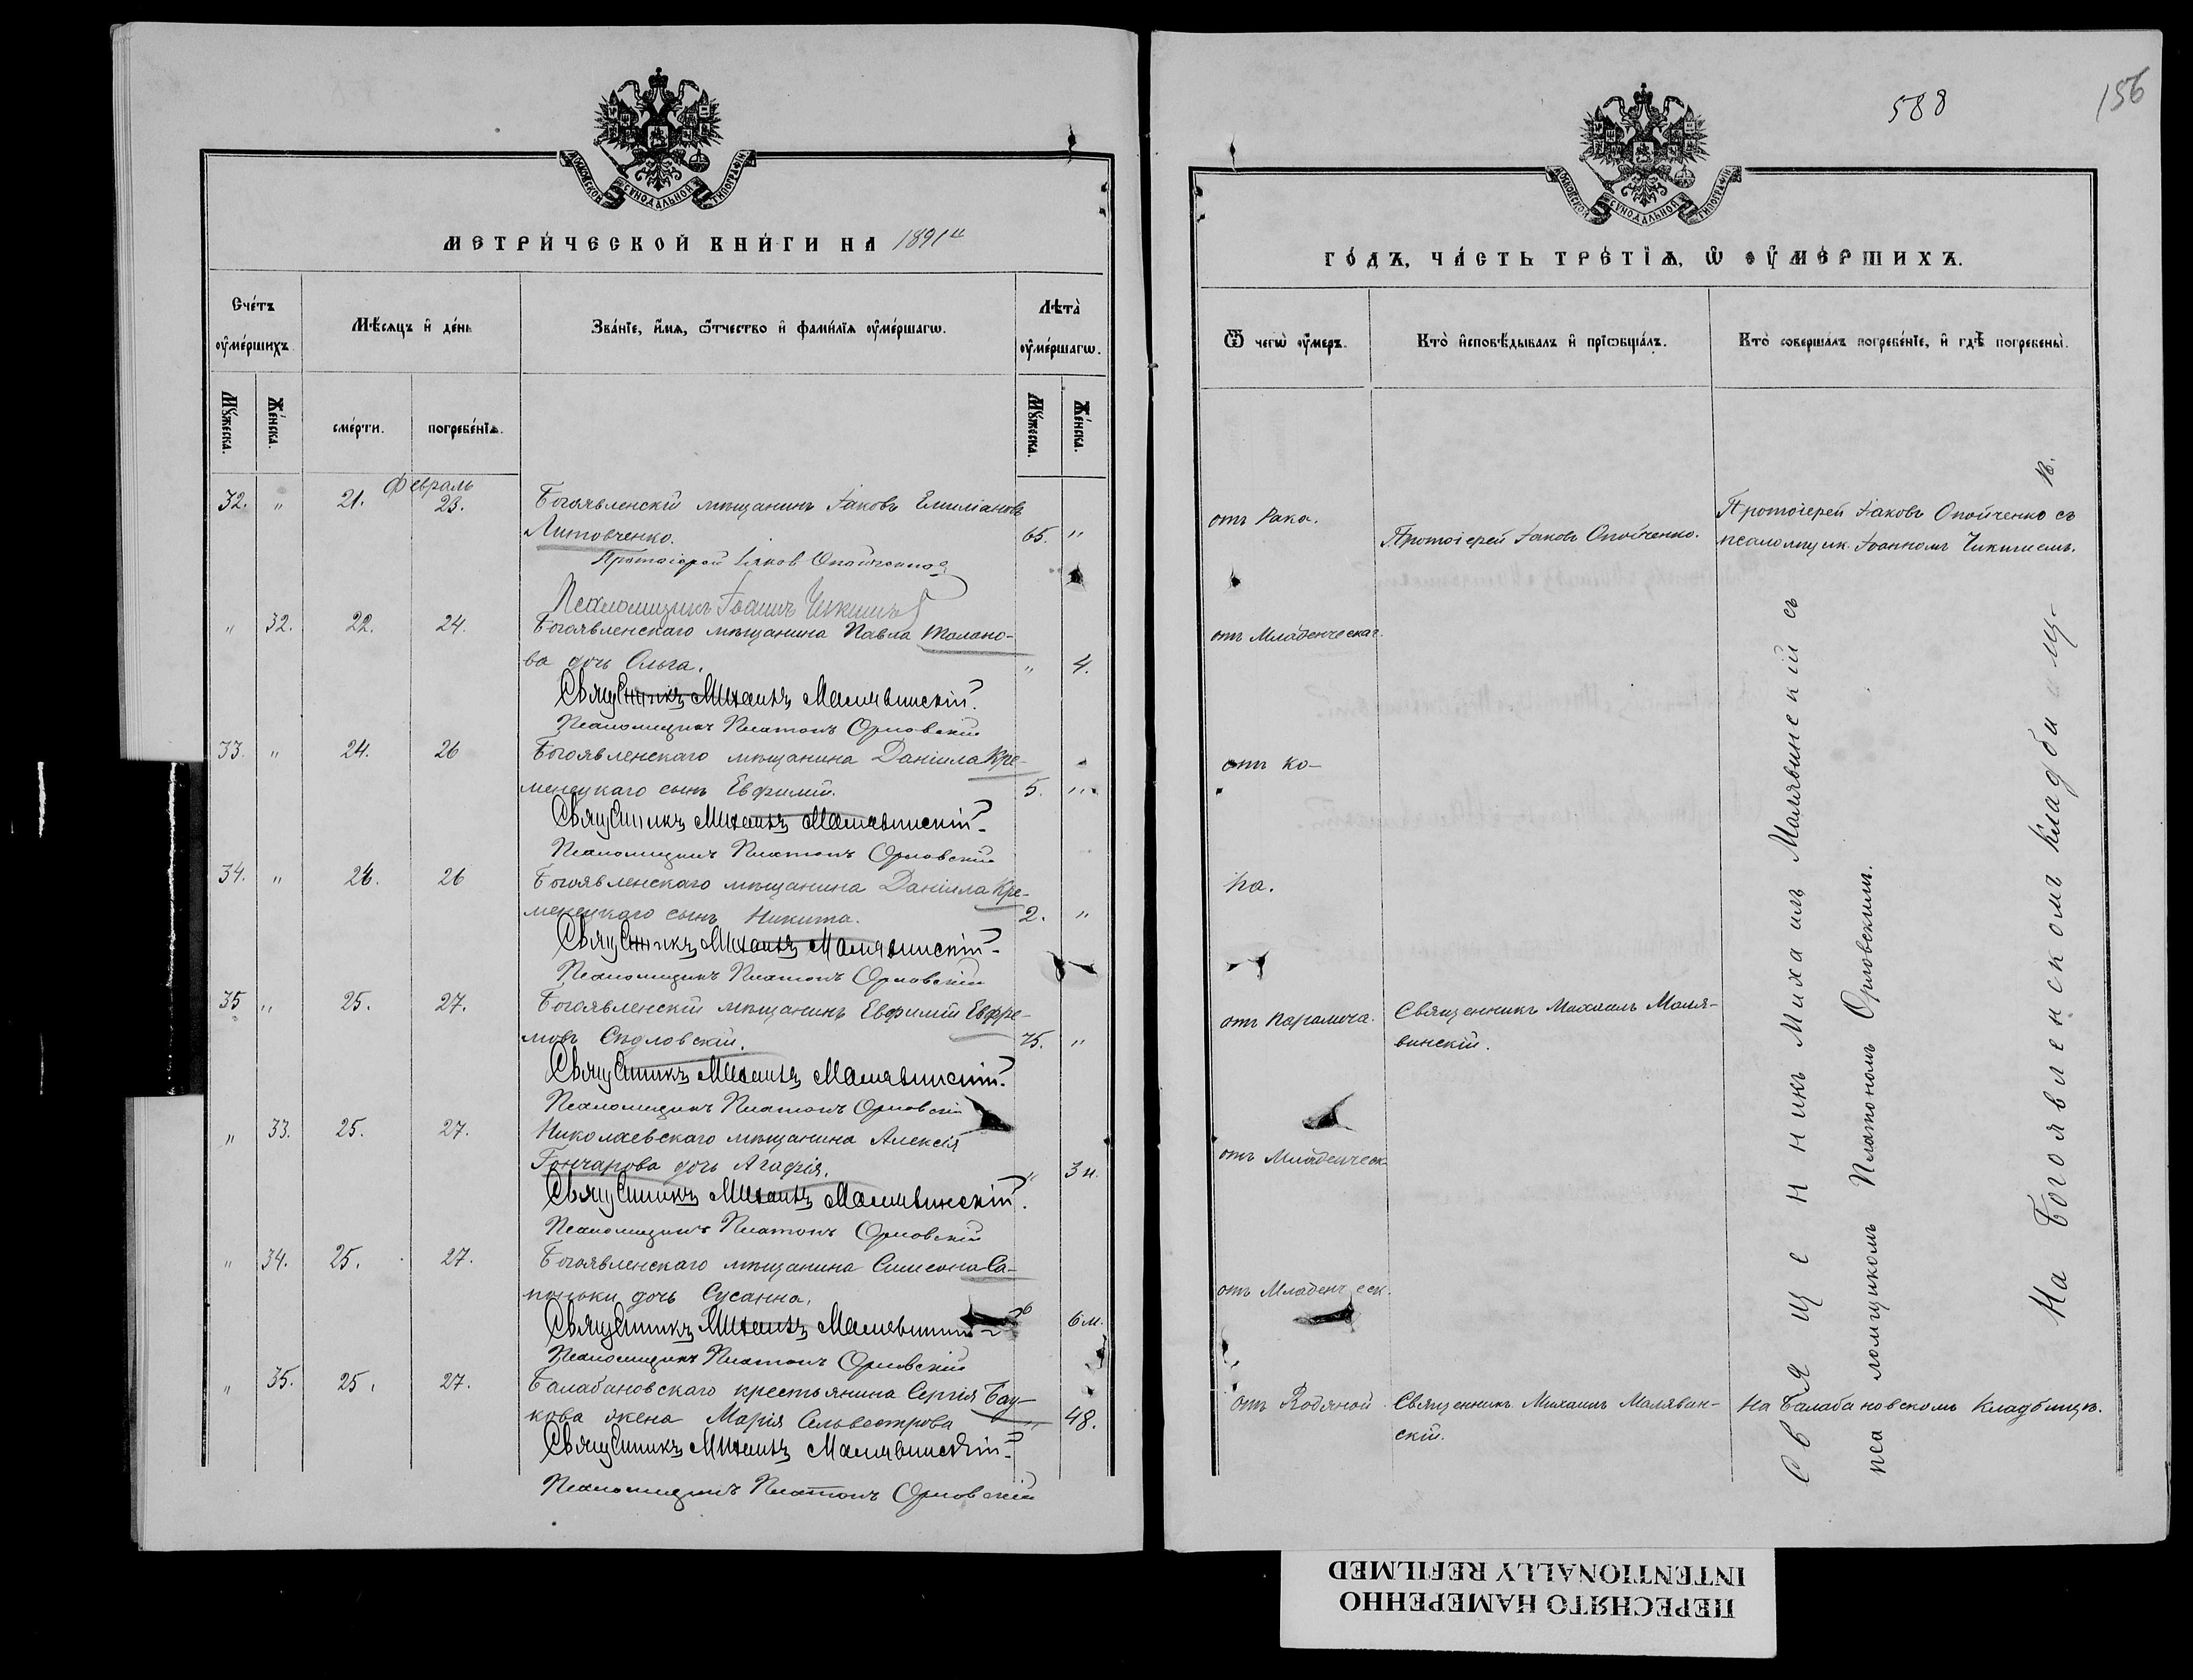 МОСКОВСКОЙ СѴНОДАЛЬНОЙ ТИПОГРАФІИ.
МЕТРИ́ЧЕСКОЙ КНИ́ГИ НА 1891 й
Сче́тъ ᲂу҆ме́ршихъ.
Мѣ́сѧцъ и҆ де́нь
Зва́нїе, и҆́мѧ, ѻ҆́тчество и҆ фами́лїѧ ᲂу҆ме́ршагѡ.
Лѣта̀ ᲂу҆ме́ршагѡ.
Мꙋ́жеска.
Же́нска.
сме́рти.
погребе́нїѧ.
Мꙋ́жеска.
Же́нска.
Февраль
32. " 21. 23. Богоявленскій мѣщанинъ Іаковъ Емиліановъ
Литовченко. 65. "
Протоіерей Іаков Опойченко
Псаломщикъ Іоаннъ Чикишъ
" 32. 22. 24. Богоявленскаго мѣщанина Павла Толано-
ва дочь Ольга. " 4.
Священникъ Михаилъ Малявинскій.
Псаломщикъ Платонъ Орловскій
33. " 24. 26 Богоявленскаго мѣщанина Даніила Кре-
менецкаго сынъ Евфимій. 5. "
Священникъ Михаилъ Малявинскій.
Псаломщикъ Платонъ Орловскій
34. " 24. 26 Богоявленскаго мѣщанина Даніила Кре-
менецкаго сынъ Никита. 2. "
Священникъ Михаилъ Малявинскій.
Псаломщикъ Платонъ Орловскій
35 " 25. 27. Богоявленскій мѣщанинъ Евфимій Евфре-
мовъ Сѣдловскій. 75. "
Священникъ Михаилъ Малявинскій.
Псаломщикъ Платонъ Орловскій
" 33. 25. 27. Николаевскаго мѣщанина Алексія
Гончарова дочь Агафія. " 3 н.
Священникъ Михаилъ Малявинскій.
Псаломщикъ Платонъ Орловскій
" 34. 25. 27. Богоявленскаго мѣщанина Симеона Са-
поньки дочь Сусанна. 6 м.
Священникъ Михаилъ Малявинскій
Псаломщикъ Платонъ Орловскій
" 35. 25. 27. Балабановскаго крестьянина Сергія Бау-
кова жена Марія Сельвестрова " 48.
Священникъ Михаилъ Малявинскій.
Псаломщикъ Платонъ Орловскій
588
156
МОСКОВСКОЙ СѴНОДАЛЬНОЙ ТИПОГРАФІИ.
ГО́ДЪ, ЧА́СТЬ ТРЕ́ТЇѦ, Ѡ҆ ОУ҆МЕ́РШИХЪ.
Ѿ чегѡ̀ ᲂу҆́меръ.
Кто̀ и҆сповѣ́дывалъ и҆ прїѡбща́лъ.
Кто̀ соверша́лъ погребе́нїе, и҆ гдѣ̀ погребены̀.
отъ Рака.
Протоіерей Іаковъ Опойченко.
Протоіерей Іаковъ Опойченко съ
псаломщик. Іоанномъ Чикишемъ.
отъ Младенческаг.
отъ ко-
ра.
отъ Паралича.
Священникъ Михаилъ Маля-
винскій.
отъ Младенческ.
отъ Младенческ.
отъ Водяной
Священникъ Михаилъ Маляван-
скій.
На Балабановскомъ кладбищѣ.
Священникъ Михаилъ Малявинскій съ
псаломщикомъ Платономъ Орловскимъ.
На Богоявленскомъ кладбищ-
ѣ.
ПЕРЕСНЯТО НАМЕРЕННО
INTENTIONALLY REFILMED